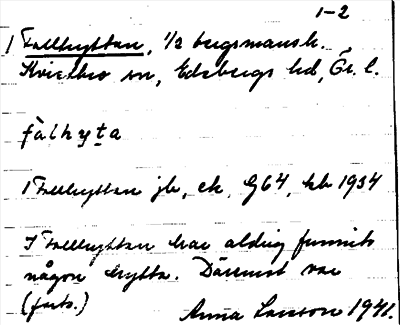 1-2
1 Fallhyttan, 1/2 bergsmansh.
Kvistbro sn, Edsbergs hd, Ör. l.
fàlhyta
1 Fallhyttan jb, ek, G64, kb 1934
I Fallhyttan har aldrig funnits
någon hytta. Däremot var
(forts.) Anna Larsson 1941.